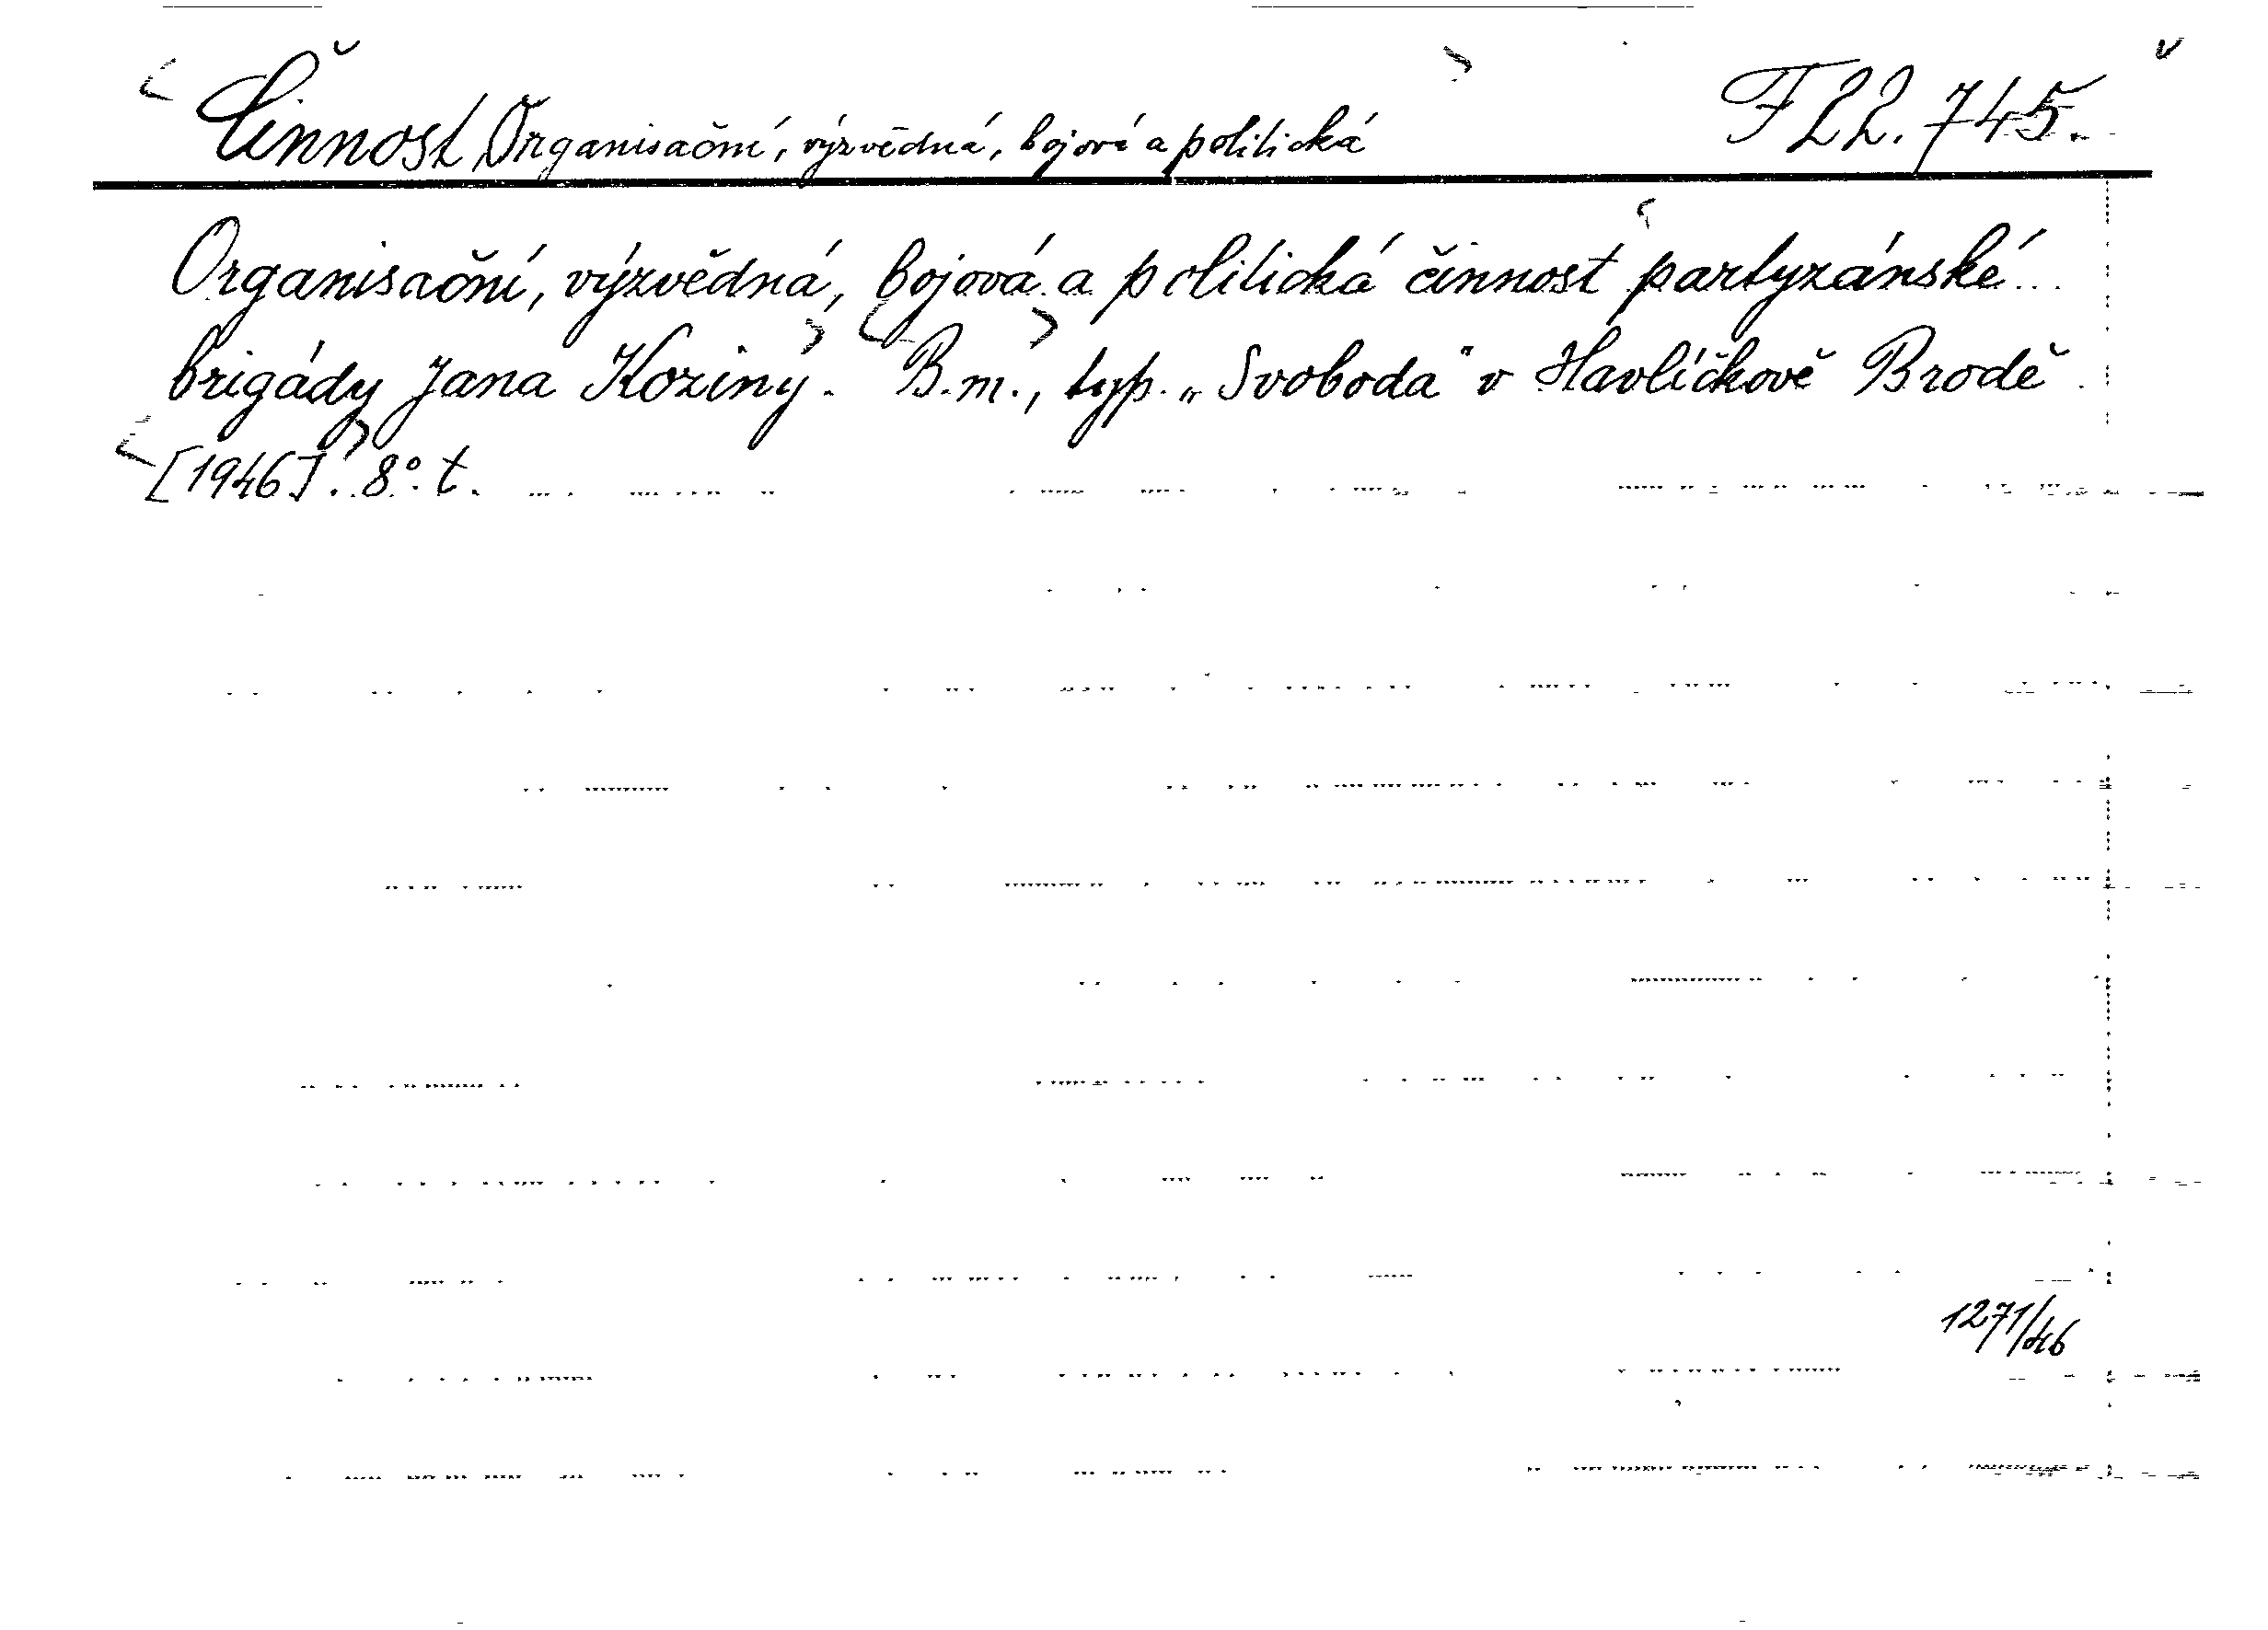 Činnost Organisační, výzvědná, bojová a politická F 22.745.
Organisační, výzvědná, bojová a politická činnost partyzánské
brigády Jana Koziny. B.m., typ. „Svoboda" v Havlíčkově Brodě
[1946]. 8°. t.
1271/46